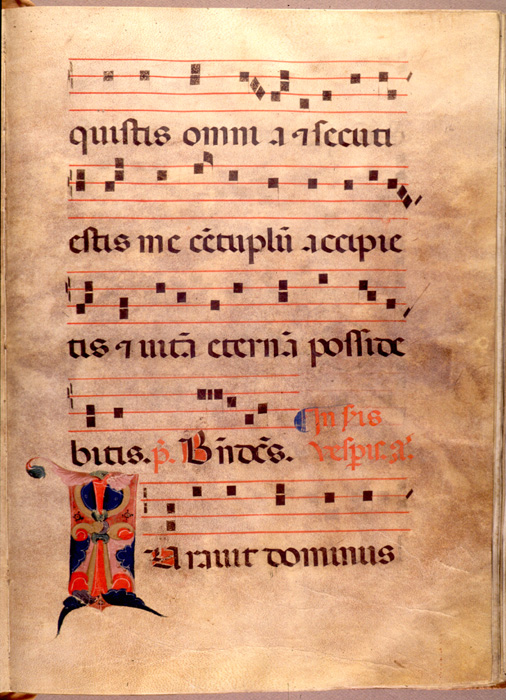 quistis omnia ⁊ secuti
estis me cẽtuplũ accipie
tis ⁊ uitã eternã posside
bitis. p̃. Bñdcs̃. In scĩs
vesp̃is. añ.
IUrauit dominus